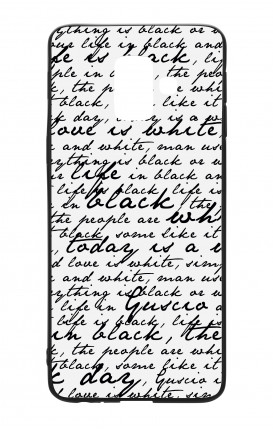 ything is black or w
our life in black and
fe is black, li
ple in b the peo
k, the p e whi
black, like it
k day, y is a w
love is white,
and white, man us
ything is black or w
r life in black an
life is black, life is
in black, the
the people are wh
black, some like it
, today is a w
d love is white, sim
and white, man us
ything is black or w
life in Guscio a
life is black, life is
in black, the
k, the people are whi
black, some like it
k day, Guscio i
love is white, sin